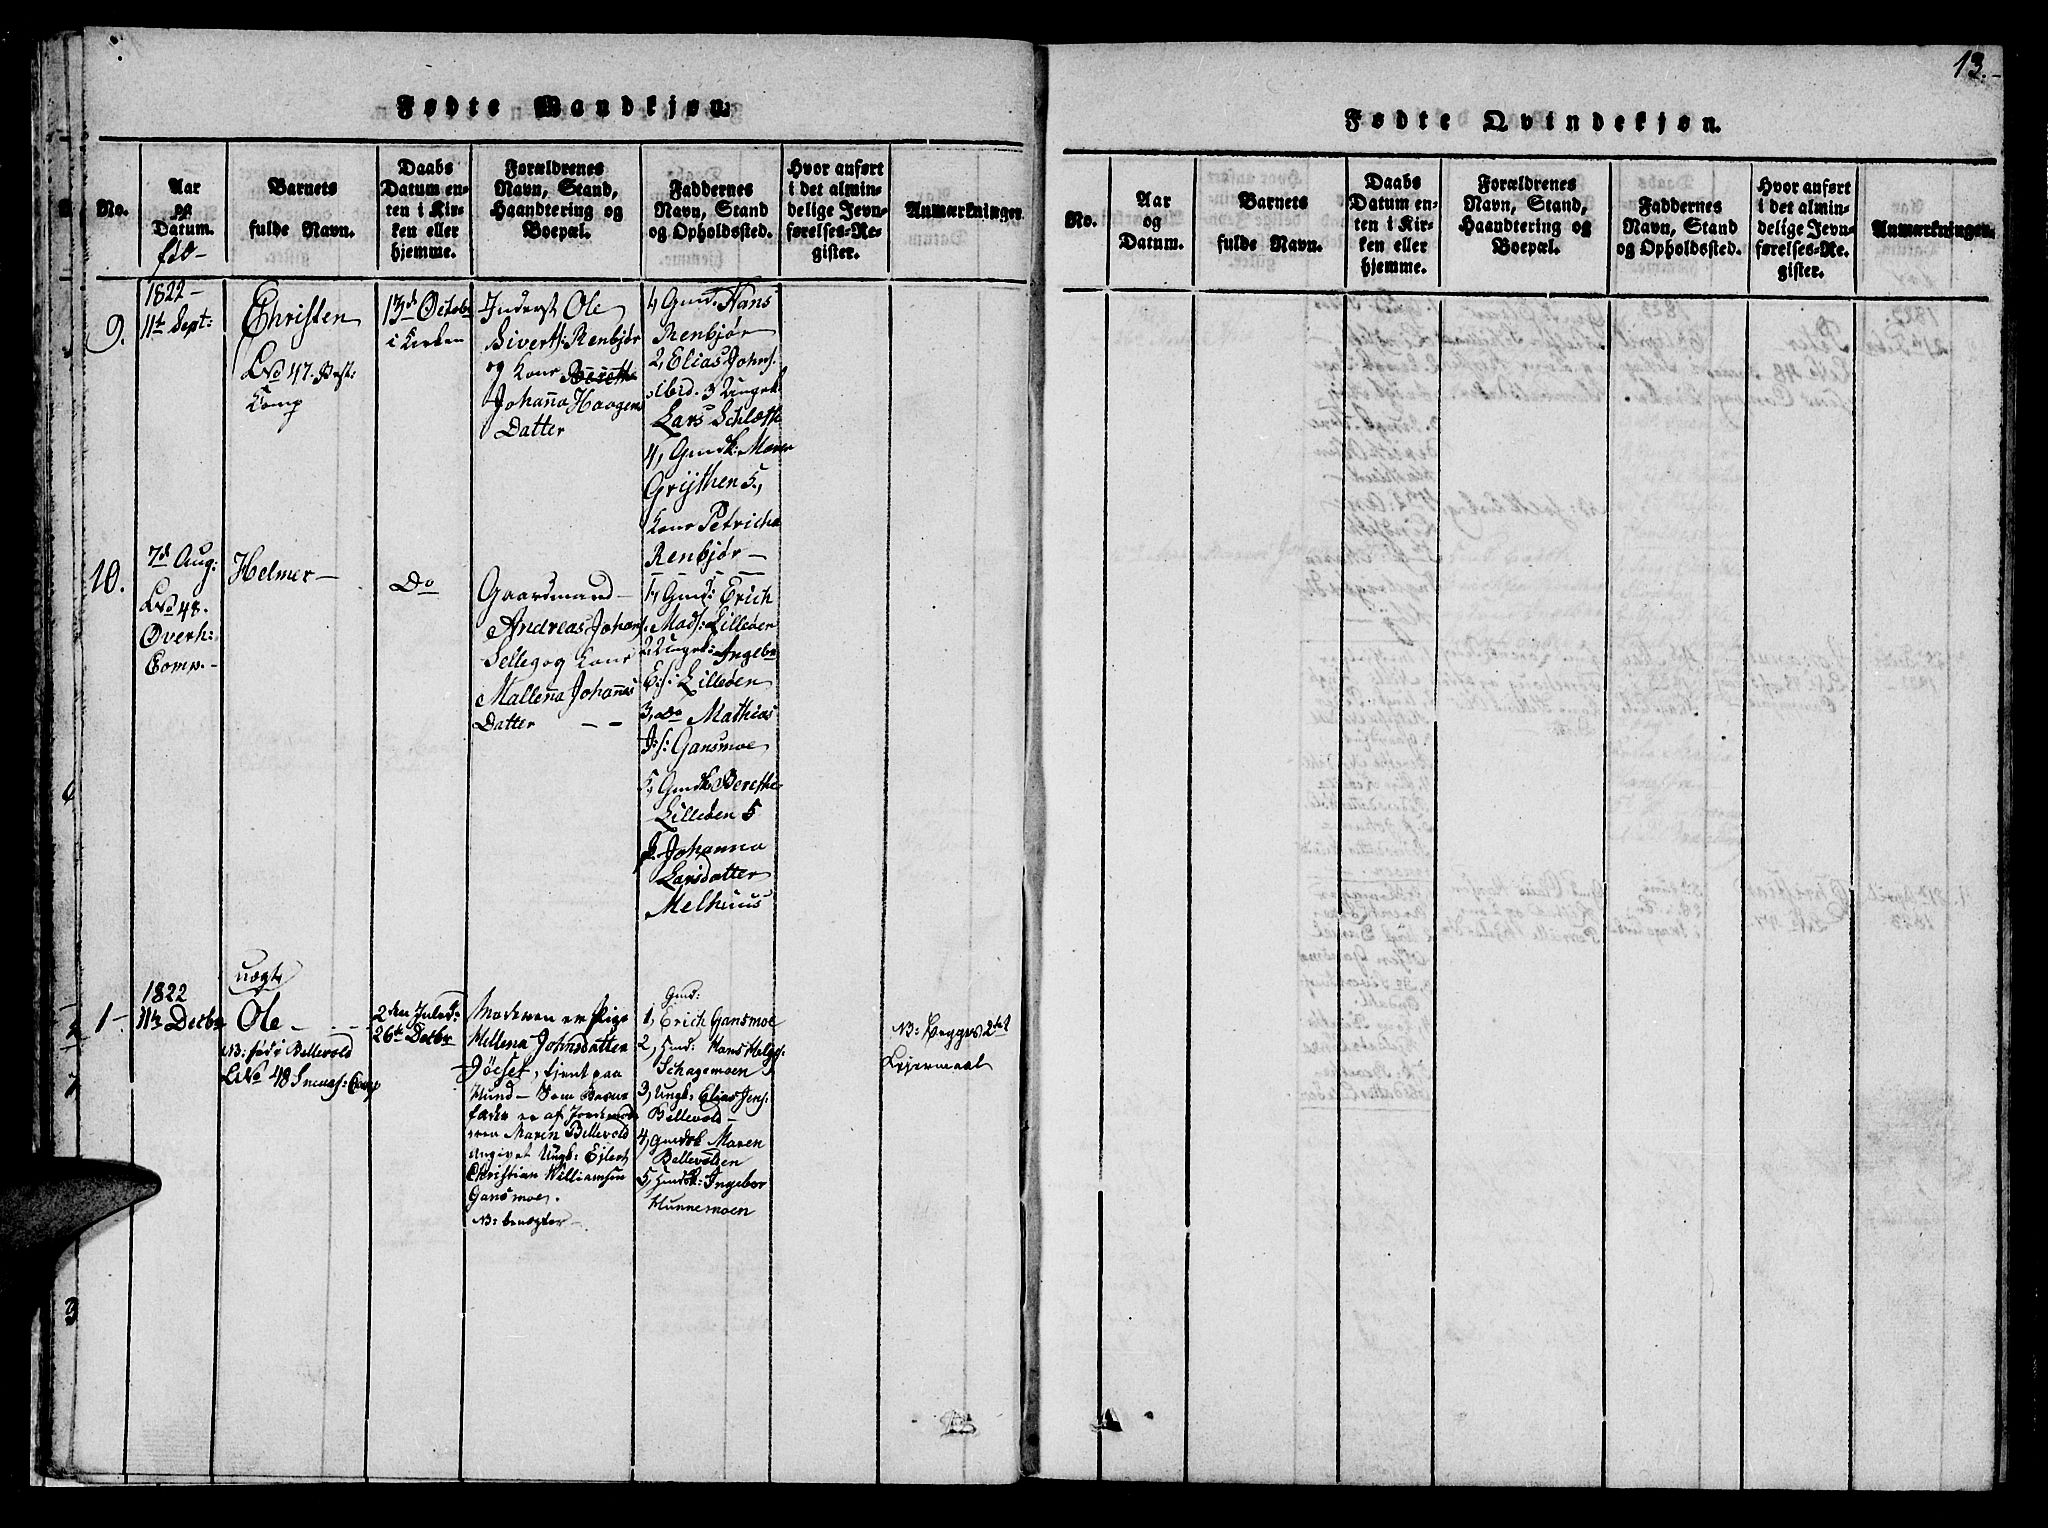 Fødte Mandkjøn.
No.
Aar
og
Datum.
Barnets
fulde Navn.
Daabs
Datum en-
ten i Kir-
ken eller
hjemme.
Forældrenes
Navn, Stand,
Haandtering og
Boepæl.
Faddernes
Navn, Stand
og Opholdssted.
Hvor anført
i det almin-
delige Jevn-
førelses-Re-
gister.
Anmærkninger
9.
1822-
11te Sept:
Christen
LNo 47. Vest:
Comp
13d Octob:
i Kirken
Inderst Ole
Siverts: Renbjør
og Kone Bereth
Johanna Haagens
Datter
1, Gmd: Hans
Renbjør
2, Elias Johns:
ibid. 3 Ungek
Lars Schlette
4, Gmdk: Maren
Grÿthen 5,
Kone Petricha
Renbjør-
10.
7d Aug:
LNo 48.
Overh:
Comp.-
Helmer-
Do
Gaardmand-
Andreas Johan
Selleg og Kone
Mallena Johannes
Datter - -
1, Gmd: Erich
Mads: Lilleden
2 Ungek: Ingebr
E:s: Lilleden
3, do Mathias
J:s: Gansmoe
5, Gmdk Berethe
Lilleden 5
P. Johanna
Larsdatter
Melhuus
1-
1822
11te Decbr
uægte
Ole - - -
NB: fød i Bellevold
LNo 48 Sneaas: Comp
2den Juled:
26te Decbr
Moderen er Pige
Hellena Johnsdatter
Jöesef, tjent paa
Mund- Som Barne
fader er af Jordemode
ren Maren Bellevold
angivet Ungk: Ejlert
Christian Williamsen
Gansmoe.
NB: benægter-
Gmd:
1, Erich Gansmoe
2, Hmd: Hans Helges:
Schagemoen
3, Ungk: Elias Jens:
Bellevold-
4, Gmdsk Maren
Bellevolden
5, Hmdsk: Ingebor
Munnemoen
NB: Begges 2det
Lejermaal
13.-
Fødte Qvindekjøn.
No.
Aar
og
Datum.
Barnets
fulde Navn.
Daabs
Datum en-
ten i Kir-
ken eller
hjemme.
Forældrenes
Navn, Stand,
Haandtering og
Boepæl.
Faddernes
Navn, Stand
og Opholdssted.
Hvor anført
i det almin-
delige Jevn-
førelses-Re-
gister.
Anmærkninger.